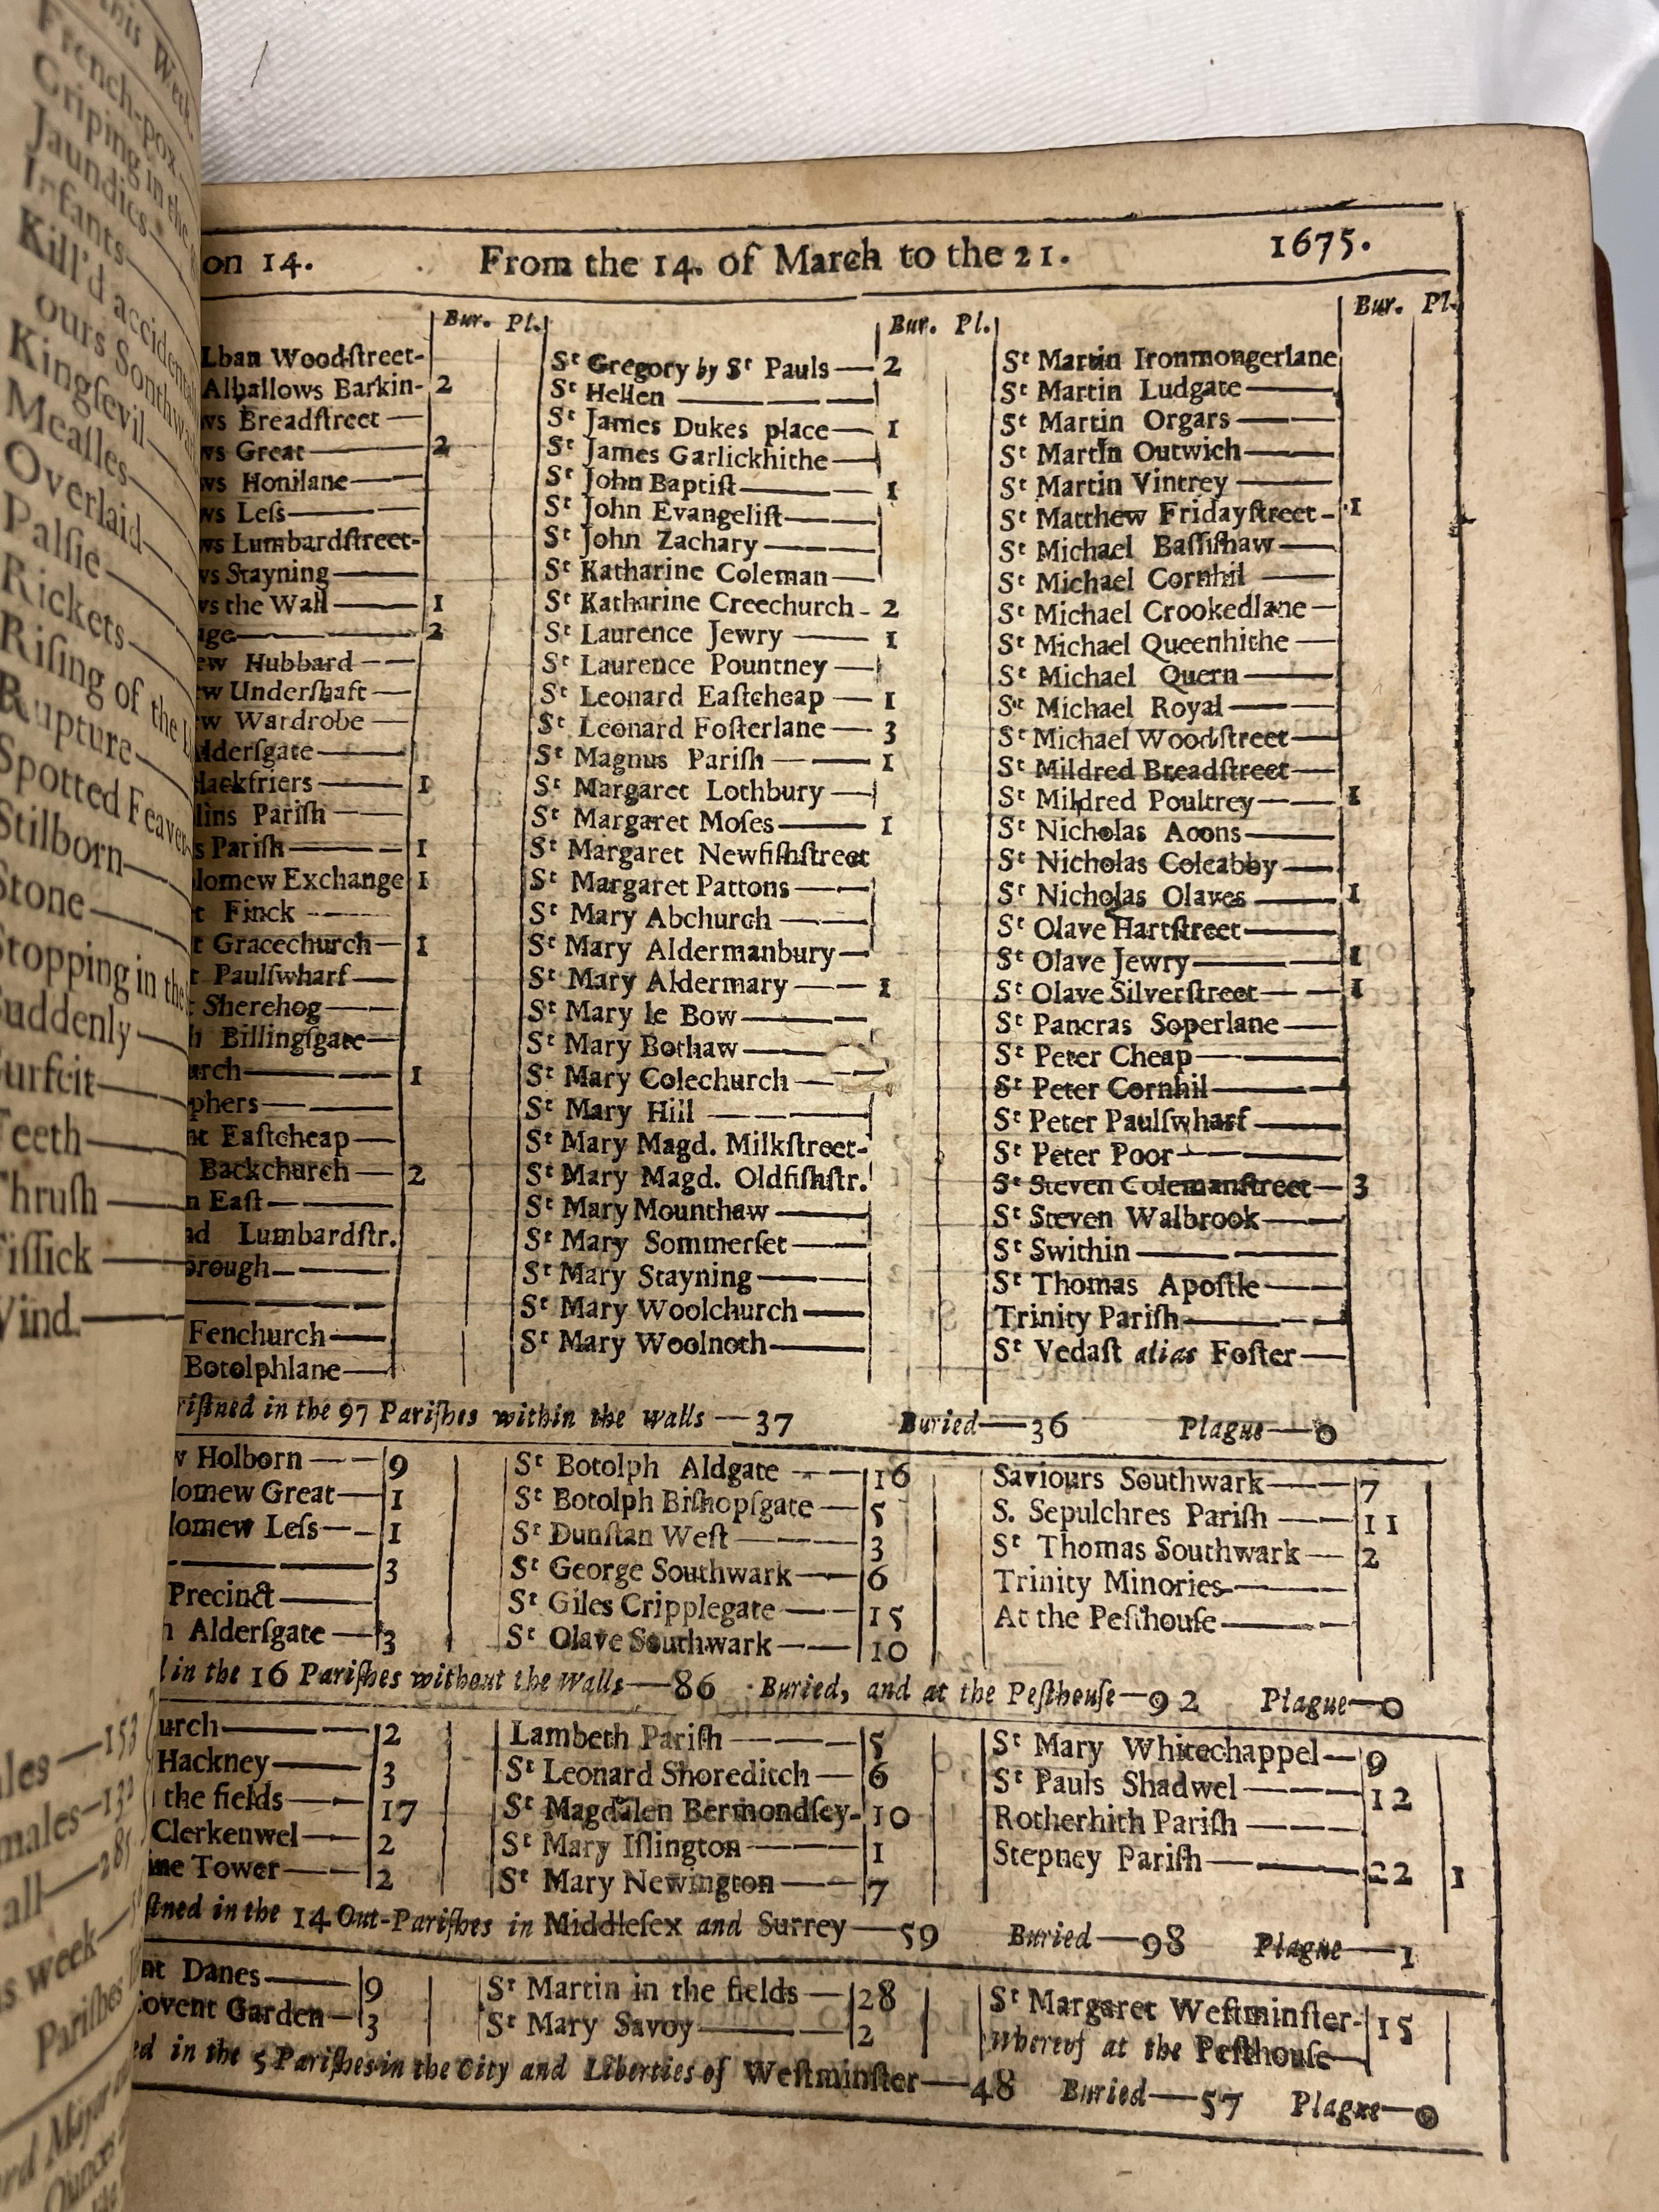 this Week.
French-pox
Griping in the
Jaundies
Infants
Kill'd accidentally
ours Southwark
Kingsevil
Meaſles
Overlaid
Palſie
Rickets
Riſing of the
Rupture
Spotted Feaver
Stilborn
Stone
Stopping in the
Suddenly
Surfeit
Teeth
Thruſh
Tiſſick
Wind.
ales —153
males—132
all—285
s week—
Pariſhes
ord Major
Ounces
on 14. From the 14. of March to the 21. 1675.
Bur. Pl.
Lban Woodſtreet-
Alhallows Barkin- 2
ws Breadſtreet —
ws Great —— 2
ws Honilane ——
ws Leſs ——
ws Lumbardſtreet-
ws Stayning ——
ws the Wall —— 1
age —— 2
ew Hubbard ——
ew Underſhaft —
ew Wardrobe —
Alderſgate ——
lackfriers —— 1
lins Pariſh ——
s Pariſh —— 1
lomew Exchange 1
t Finck ——
t Gracechurch— 1
t Paulſwharf —
t Sherehog ——
h Billingſgate—
urch —— 1
phers ——
nt Eaſtcheap —
Backchurch — 2
n Eaſt ——
nd Lumbardſtr.
orough ——
——
Fenchurch ——
Botolphlane —
Bur. Pl.
Sᵗ Gregory by Sᵗ Pauls — 2
Sᵗ Hellen ——
Sᵗ James Dukes place — 1
Sᵗ James Garlickhithe —
Sᵗ John Baptiſt —— 1
Sᵗ John Evangeliſt ——
Sᵗ John Zachary ——
Sᵗ Katharine Coleman —
Sᵗ Katharine Creechurch - 2
Sᵗ Laurence Jewry —— 1
Sᵗ Laurence Pountney —
Sᵗ Leonard Eaſtcheap — 1
Sᵗ Leonard Foſterlane — 3
Sᵗ Magnus Pariſh —— 1
Sᵗ Margaret Lothbury —
Sᵗ Margaret Moſes —— 1
Sᵗ Margaret Newfiſhſtreet
Sᵗ Margaret Pattons ——
Sᵗ Mary Abchurch ——
Sᵗ Mary Aldermanbury—
Sᵗ Mary Aldermary —— 1
Sᵗ Mary le Bow ——
Sᵗ Mary Bothaw ——
Sᵗ Mary Colechurch —
Sᵗ Mary Hill ——
Sᵗ Mary Magd. Milkſtreet-
Sᵗ Mary Magd. Oldfiſhſtr.
Sᵗ Mary Mounthaw ——
Sᵗ Mary Sommerſet ——
Sᵗ Mary Stayning ——
Sᵗ Mary Woolchurch ——
Sᵗ Mary Woolnoth ——
Bur. Pl.
Sᵗ Martin Ironmongerlane
Sᵗ Martin Ludgate ——
Sᵗ Martin Orgars ——
Sᵗ Martin Outwich ——
Sᵗ Martin Vintrey ——
Sᵗ Matthew Fridayſtreet - 1
Sᵗ Michael Baſſiſhaw ——
Sᵗ Michael Cornhil ——
Sᵗ Michael Crookedlane —
Sᵗ Michael Queenhithe —
Sᵗ Michael Quern ——
Sᵗ Michael Royal ——
Sᵗ Michael Woodſtreet—
Sᵗ Mildred Breadſtreet—
Sᵗ Mildred Poultrey —— 1
Sᵗ Nicholas Acons ——
Sᵗ Nicholas Coleabby —
Sᵗ Nicholas Olaves —— 1
Sᵗ Olave Hartſtreet ——
Sᵗ Olave Jewry —— 1
Sᵗ Olave Silverſtreet —— 1
Sᵗ Pancras Soperlane —
Sᵗ Peter Cheap ——
Sᵗ Peter Cornhil ——
Sᵗ Peter Paulſwharf ——
Sᵗ Peter Poor ——
Sᵗ Steven Colemanſtreet — 3
Sᵗ Steven Walbrook ——
Sᵗ Swithin ——
Sᵗ Thomas Apoſtle ——
Trinity Pariſh ——
Sᵗ Vedaſt alias Foſter —
riſtned in the 97 Pariſhes within the walls — 37 Buried — 36 Plague — 0
w Holborn —— 9
lomew Great— 1
lomew Leſs—— 1
—— 3
Precinct ——
h Alderſgate — 3
Sᵗ Botolph Aldgate —— 16
Sᵗ Botolph Biſhopſgate — 5
Sᵗ Dunſtan Weſt —— 3
Sᵗ George Southwark — 6
Sᵗ Giles Cripplegate —— 15
Sᵗ Olave Southwark —— 10
Saviours Southwark —— 7
S. Sepulchres Pariſh —— 11
Sᵗ Thomas Southwark — 2
Trinity Minories ——
At the Peſthouſe ——
in the 16 Pariſhes without the Walls — 86 Buried, and at the Peſthouſe — 92 Plague — 0
urch —— 2
Hackney —— 3
the fields —— 17
Clerkenwel —— 2
ine Tower —— 2
Lambeth Pariſh —— 5
Sᵗ Leonard Shoreditch — 6
Sᵗ Magdalen Bermondſey- 10
Sᵗ Mary Iſlington —— 1
Sᵗ Mary Newington —— 7
Sᵗ Mary Whitechappel — 9
Sᵗ Pauls Shadwel —— 12
Rotherhith Pariſh ——
Stepney Pariſh —— 22 1
ſtned in the 14 Out-Pariſhes in Middleſex and Surrey — 59 Buried — 98 Plague — 1
nt Danes —— 9
Covent Garden — 3
Sᵗ Martin in the fields — 28
Sᵗ Mary Savoy —— 2
Sᵗ Margaret Weſtminſter- 15
whereof at the Peſthouſe—
ed in the 5 Pariſhes in the City and Liberties of Weſtminſter — 48 Buried — 57 Plague — 0